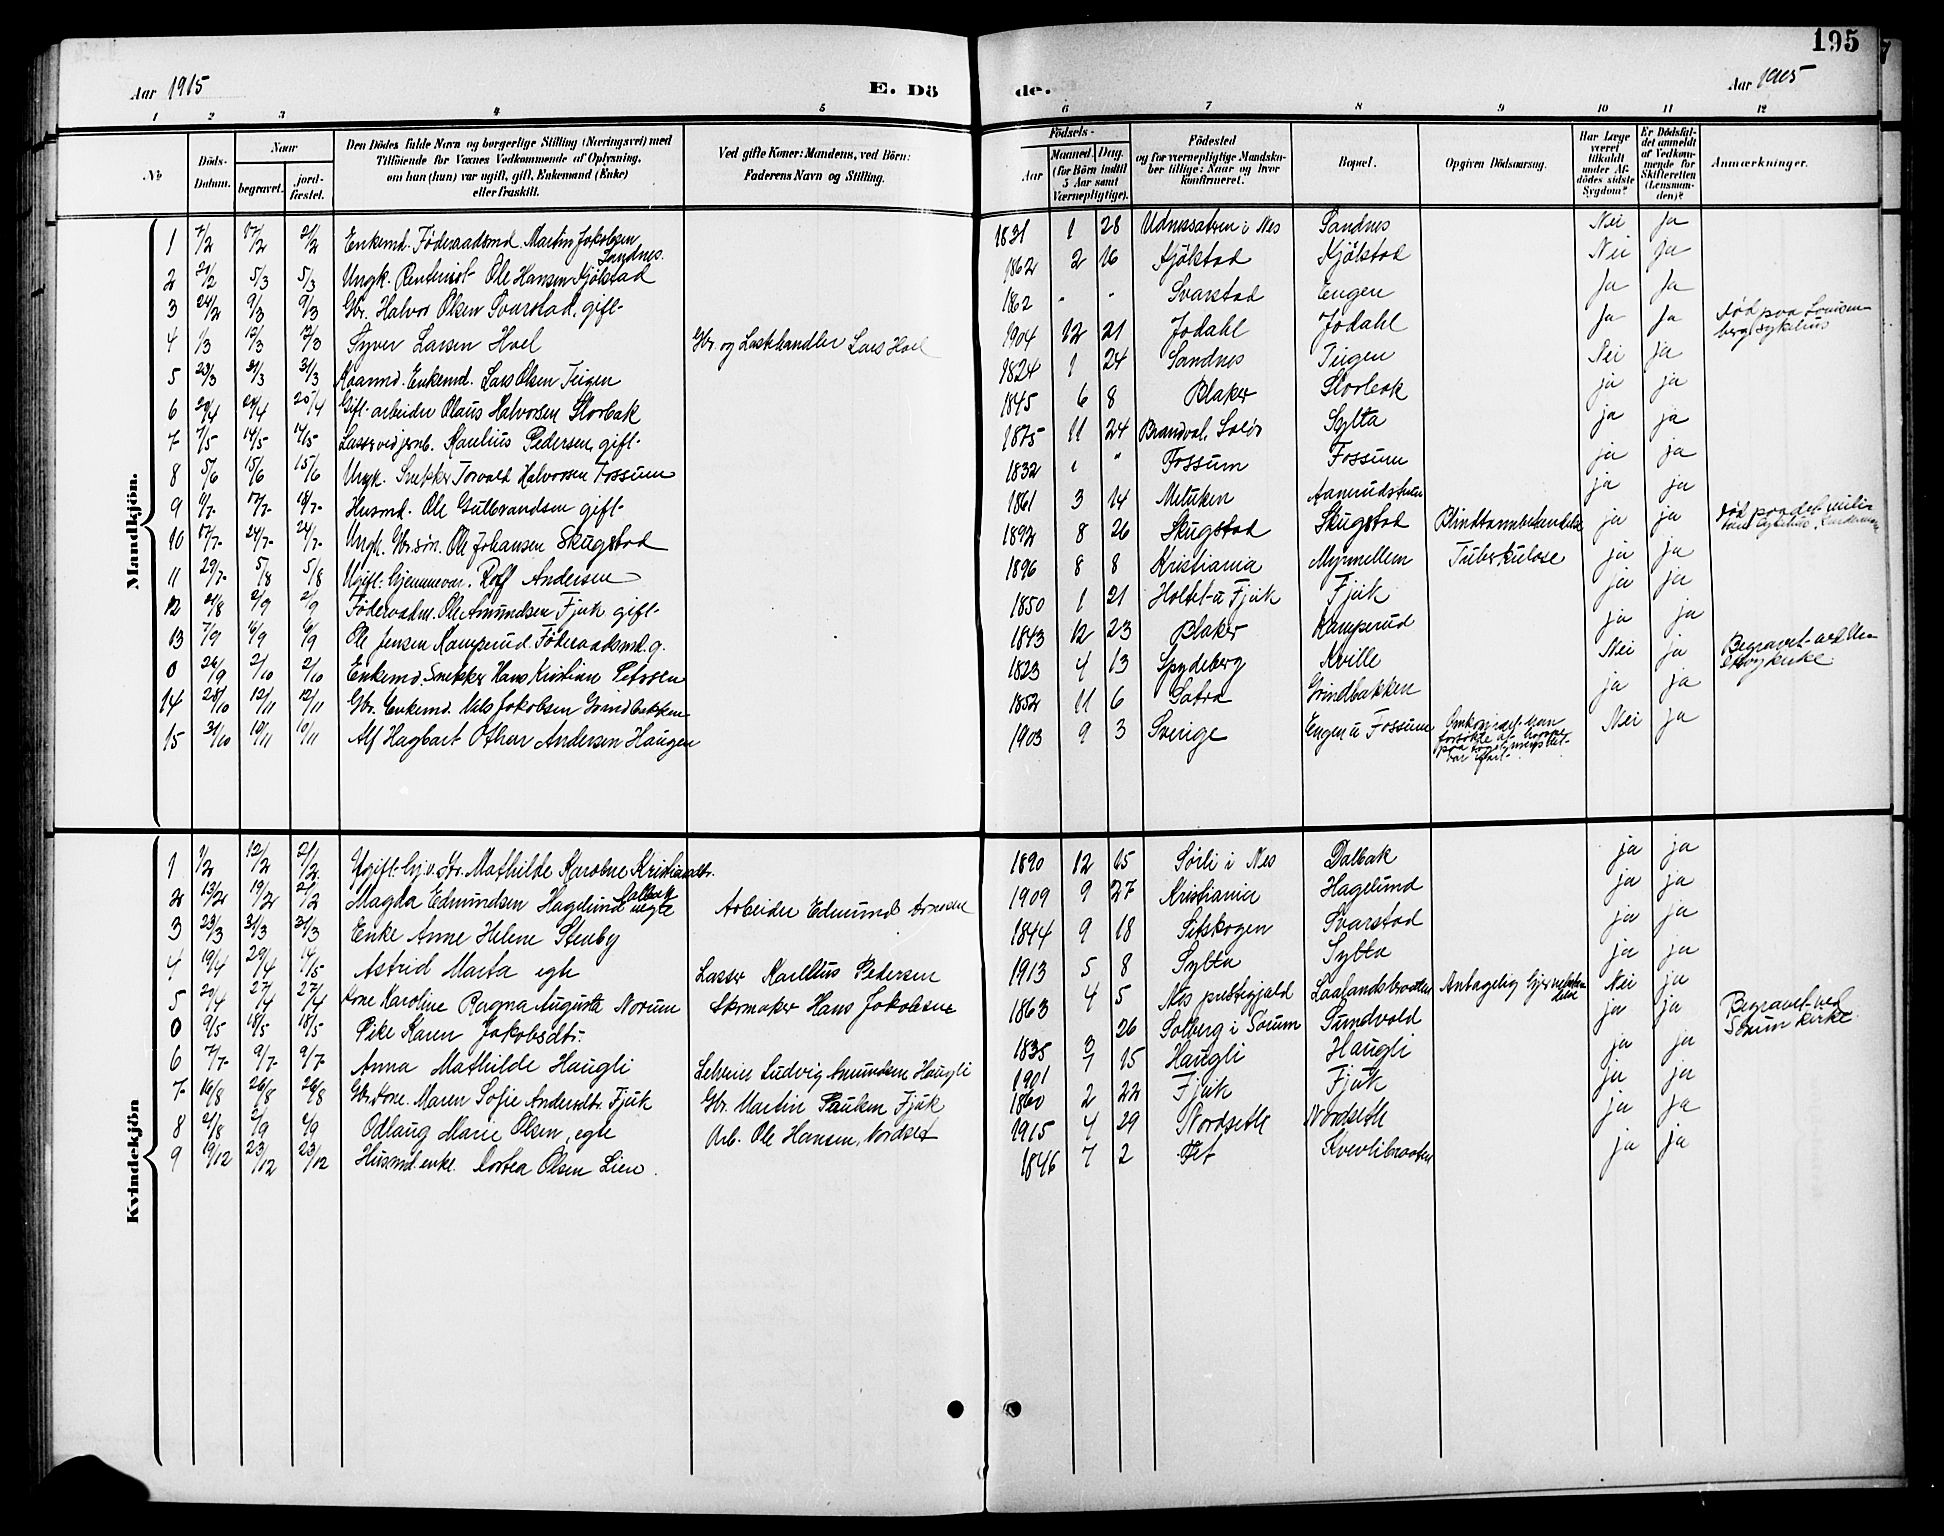 195
Aar 1915
E. Dö
de.
Aar 1915
1 2 3 4 5 6 7 8 9 10 11 12
No
Döds-Datum.
Naar
begravet.
jord-fæstet.
Den Dödes fulde Navn og borgerlige Stilling (Næringsvei) med
Tilföiende for Voxnes Vedkommende af Oplysning,
om han (hun) var ugift, gift, Enkemand (Enke)
eller fraskilt.
Ved gifte Koner: Mandens, ved Börn:
Faderens Navn og Stilling.
Födsels-
Aar
Maaned. Dag.
(for Börn indtil
5 Aar samt
Værnepligtige).
Födested
og for værnepligtige Mandska-
ber tillige: Naar og hvor
konfirmeret.
Bopæl.
Opgiven Dödsaarsag.
Har Læge
været
tilkaldt
under Af-
dödes sidste
Sygdom?
Er Dödsfal-
det anmeldt
af Vedkom-
mende for
Skifteretten
(Lensman-
den)?
Anmærkninger.
Mandkjön.
1 7/2 17/2 21/2 Enkemd. Föderaadsmd. Martin Jakobsen Sandnes. 1831 1 28 Udnessætren i Nes Sandnes Nei ja
2 21/2 5/3 5/3 Ungk. Rentenist Ole Hansen Kjölstad 1862 2 16 Kjölstad Kjölstad Nei ja
3 24/2 9/3 9/3 Gbr. Halvor Olsen Svarstad, gift 1862 " " Svarstad Engen Ja Ja
4 1/3 12/3 12/3 Syver Larsen Hoel Gbr. og Lasthandler Lars Hoel 1904 12 21 Jodahl Jodahl Ja Ja Död paa Louisenberg sykehus
5 23/3 31/3 31/3 Enkemd. Lars Olsen Teigen 1824 1 24 Sandnes Teigen Nei ja
6 20/4 28/4 25/4 Gift arbeider Olaus Halvorsen Storbak 1845 6 8 Blaker Storbak ja ja
7 7/5 14/5 14/5 Karelius Pedersen, gift 1875 11 24 Brandval, Solör Sylta ja ja
8 5/6 15/6 15/6 Ungk. Snekker Torvald Halvorsen Fossum 1832 Fossum Fossum ja ja
9 11/7 17/7 18/7 Husmd. Ole Gulbrandsen gift 1861 3 14 ja ja
10 17/7 24/7 24/7 Ungk. Gbr.sön. Ole Johansen Skugstad 1892 8 26 Skugstad Skugstad ja ja
11 29/7 5/8 5/8 Ugift. hjemmevær. Rolf Andersen 1896 8 8 Kristiania Myrmellem Tuberkulose ja ja
12 21/8 2/9 2/9 Föderaadsm. Ole Amundsen Fjuk gift 1850 1 21 Holtet u Fjuk Fjuk ja ja
13 7/9 16/9 16/9 Ole Jensen Kamperud Föderaadsmd. g. 1843 12 23 Blaker Kamperud ja ja
0 26/9 2/10 2/10 Enkemd. Snekker Hans Kristian Petersen 1823 4 13 Spydeberg Kville Nei ja
14 28/10 12/11 12/11 Gbr. Enkemd. Nils Jakobsen Grindbakken 1852 11 6 Grindbakken ja ja
15 31/10 10/11 10/11 Alf Hagbart Othar Andersen Haugen 1903 9 3 Sverige Engen u Fossum Nei ja
Kvindekjön
1 1/2 12/2 21/2 Ugift. Mathilde Karoline Kristiansdtr. Dalbak 1890 12 15 Sörli i Nes Dalbak ja ja
2 13/2 19/2 21/2 Magda Edmundsen Hagelund uegte Arbeider Edmund Arnesen 1909 9 27 Kristiania Hagelund ja ja
3 23/3 31/3 31/3 Enke Anne Helene Stenby 1844 9 18 Setskogen Svarstad ja ja
4 19/4 29/4 14/5 Astrid Marta egte Karelius Pedersen 1913 5 8 Sylta Sylta ja ja
5 20/4 27/4 27/4 Kone Karoline Ragna Augusta Norum Skrmaker Hans Jakobsen 1863 4 5 Nes prestegjeld Laalandsbraaten Nei ja
0 9/5 18/5 18/5 Pike Karen Jakobsdtr. 1835 3 26 Solberg i Sörum Sundvold ja ja Begravet ved Sörum kirke
6 7/7 9/7 9/7 Anna Mathilde Haugli Ludvig Amundsen Haugli 1901 7 15 Haugli Haugli ja ja
7 16/8 26/8 26/8 Gbr.kone. Maren Sofie Andersdtr. Fjuk Gbr. Martin Paulsen Fjuk 1860 2 22 Fjuk Fjuk ja ja
8 21/8 2/9 2/9 Odlaug Marie Olsen, egte Arb. Ole Hansen, Nordset 1915 4 29 Nordseth Nordseth ja ja
9 19/12 23/12 23/12 Husmd.enke. Dortea Olsen Lien. 1846 7 2 Fet Kvevlibraaten ja ja